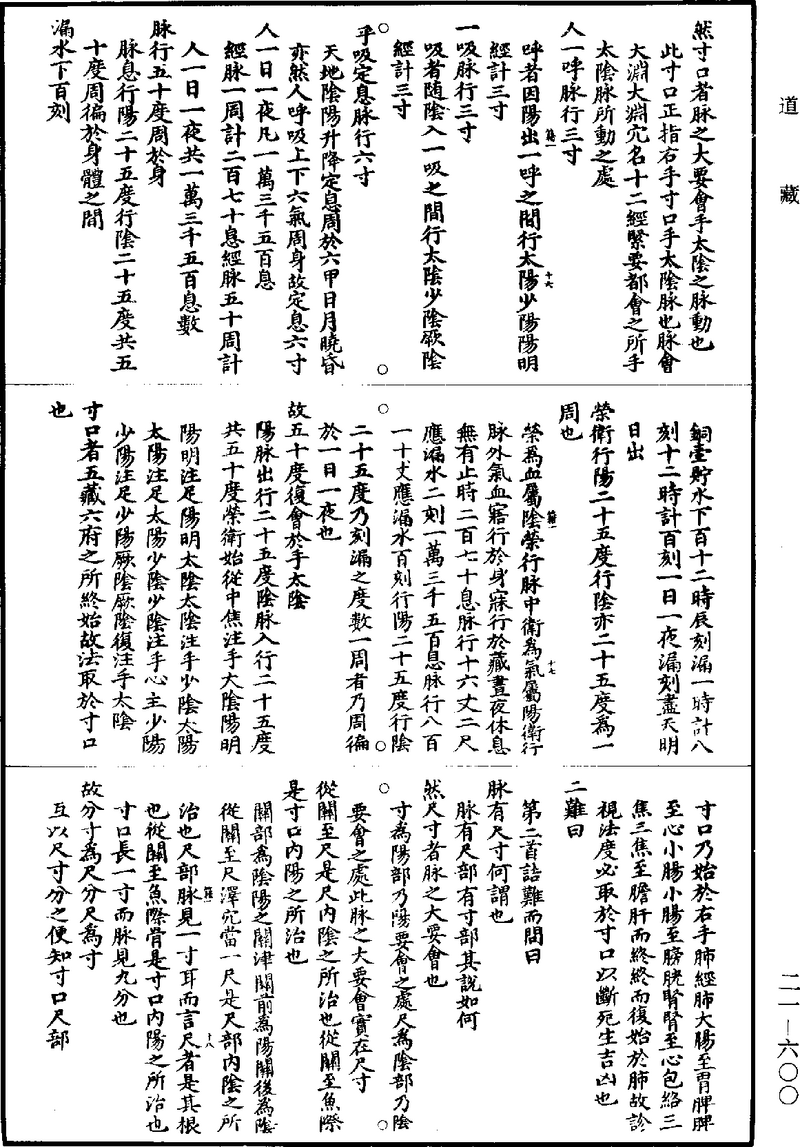 道藏
二一—六〇〇
然寸口者脉之大要會手太陰之脉動也
此寸口正指右手寸口手太陰脉也脉會
大淵大淵穴名十二經緊要都會之所手
太陰脉所動之處
人一呼脉行三寸
呼者因陽出一呼之間行太陽少陽陽明
經計三寸
一吸脉行三寸
吸者随陰入一吸之間行太陰少陰厥陰
經計三寸
乎吸定息脉行六寸
天地陰陽升降定息周於六甲日月曉昏
亦然人呼吸上下六氣周身故定息六寸
人一日一夜凡一萬三千五百息
經脉一周計二百七十息經脉五十周計
人一日一夜共一萬三千五百息數
脉行五十度周於身
脉息行陽二十五度行陰二十五度共五
十度周徧於身體之間
漏水下百刻
銅壺貯水下百十二時辰刻漏一時計八
刻十二時計百刻一日一夜漏刻盡天明
日出
榮衛行陽二十五度行陰亦二十五度爲一
周也
榮爲血屬陰榮行脉中衛爲氣屬陽衛行
脉外氣血寤行於身寐行於藏晝夜休息
無有止時二百七十息脉行十六丈二尺
應漏水二刻一萬三千五百息脉行八百
一十丈應漏水百刻行陽二十五度行陰
二十五度乃刻漏之度數一周者乃周徧
於一日一夜也
故五十度復會於手太陰
陽脉出行二十五度陰脉入行二十五度
共五十度榮衛始從中焦注手大陰陽明
陽明注足陽明太陰太陰注手少陰太陽
太陽注足太陽少陰少陰注手心主少陽
少陽注足少陽厥陰厥陰復注手太陰
寸口者五藏六府之所終始故法取於寸口
也
寸口乃始於右手肺經肺大腸至胃脾脾
至心小腸小腸至膀胱腎腎至心包絡三
焦三焦至膽肝而終終而復始於肺故診
視法度必取於寸口以斷死生吉凶也
二難曰
第二首詰難而問曰
脉有尺寸何謂也
脉有尺部有寸部其說如何
然尺寸者脉之大要會也
寸爲陽部乃陽要會之處尺爲陰部乃陰
要會之處此脉之大要會實在尺寸
從關至尺是尺内陰之所治也從關至魚際
是寸口内陽之所治也
關部爲陰陽之關津關前爲陽關後爲陰
從關至尺澤穴當一尺是尺部内陰之所
治也尺部脉見一寸耳而言尺者是其根
也從關至魚際骨是寸口内陽之所治也
寸口長一寸而脉見九分也
故分寸爲尺分尺爲寸
互以尺寸分之便知寸口尺部